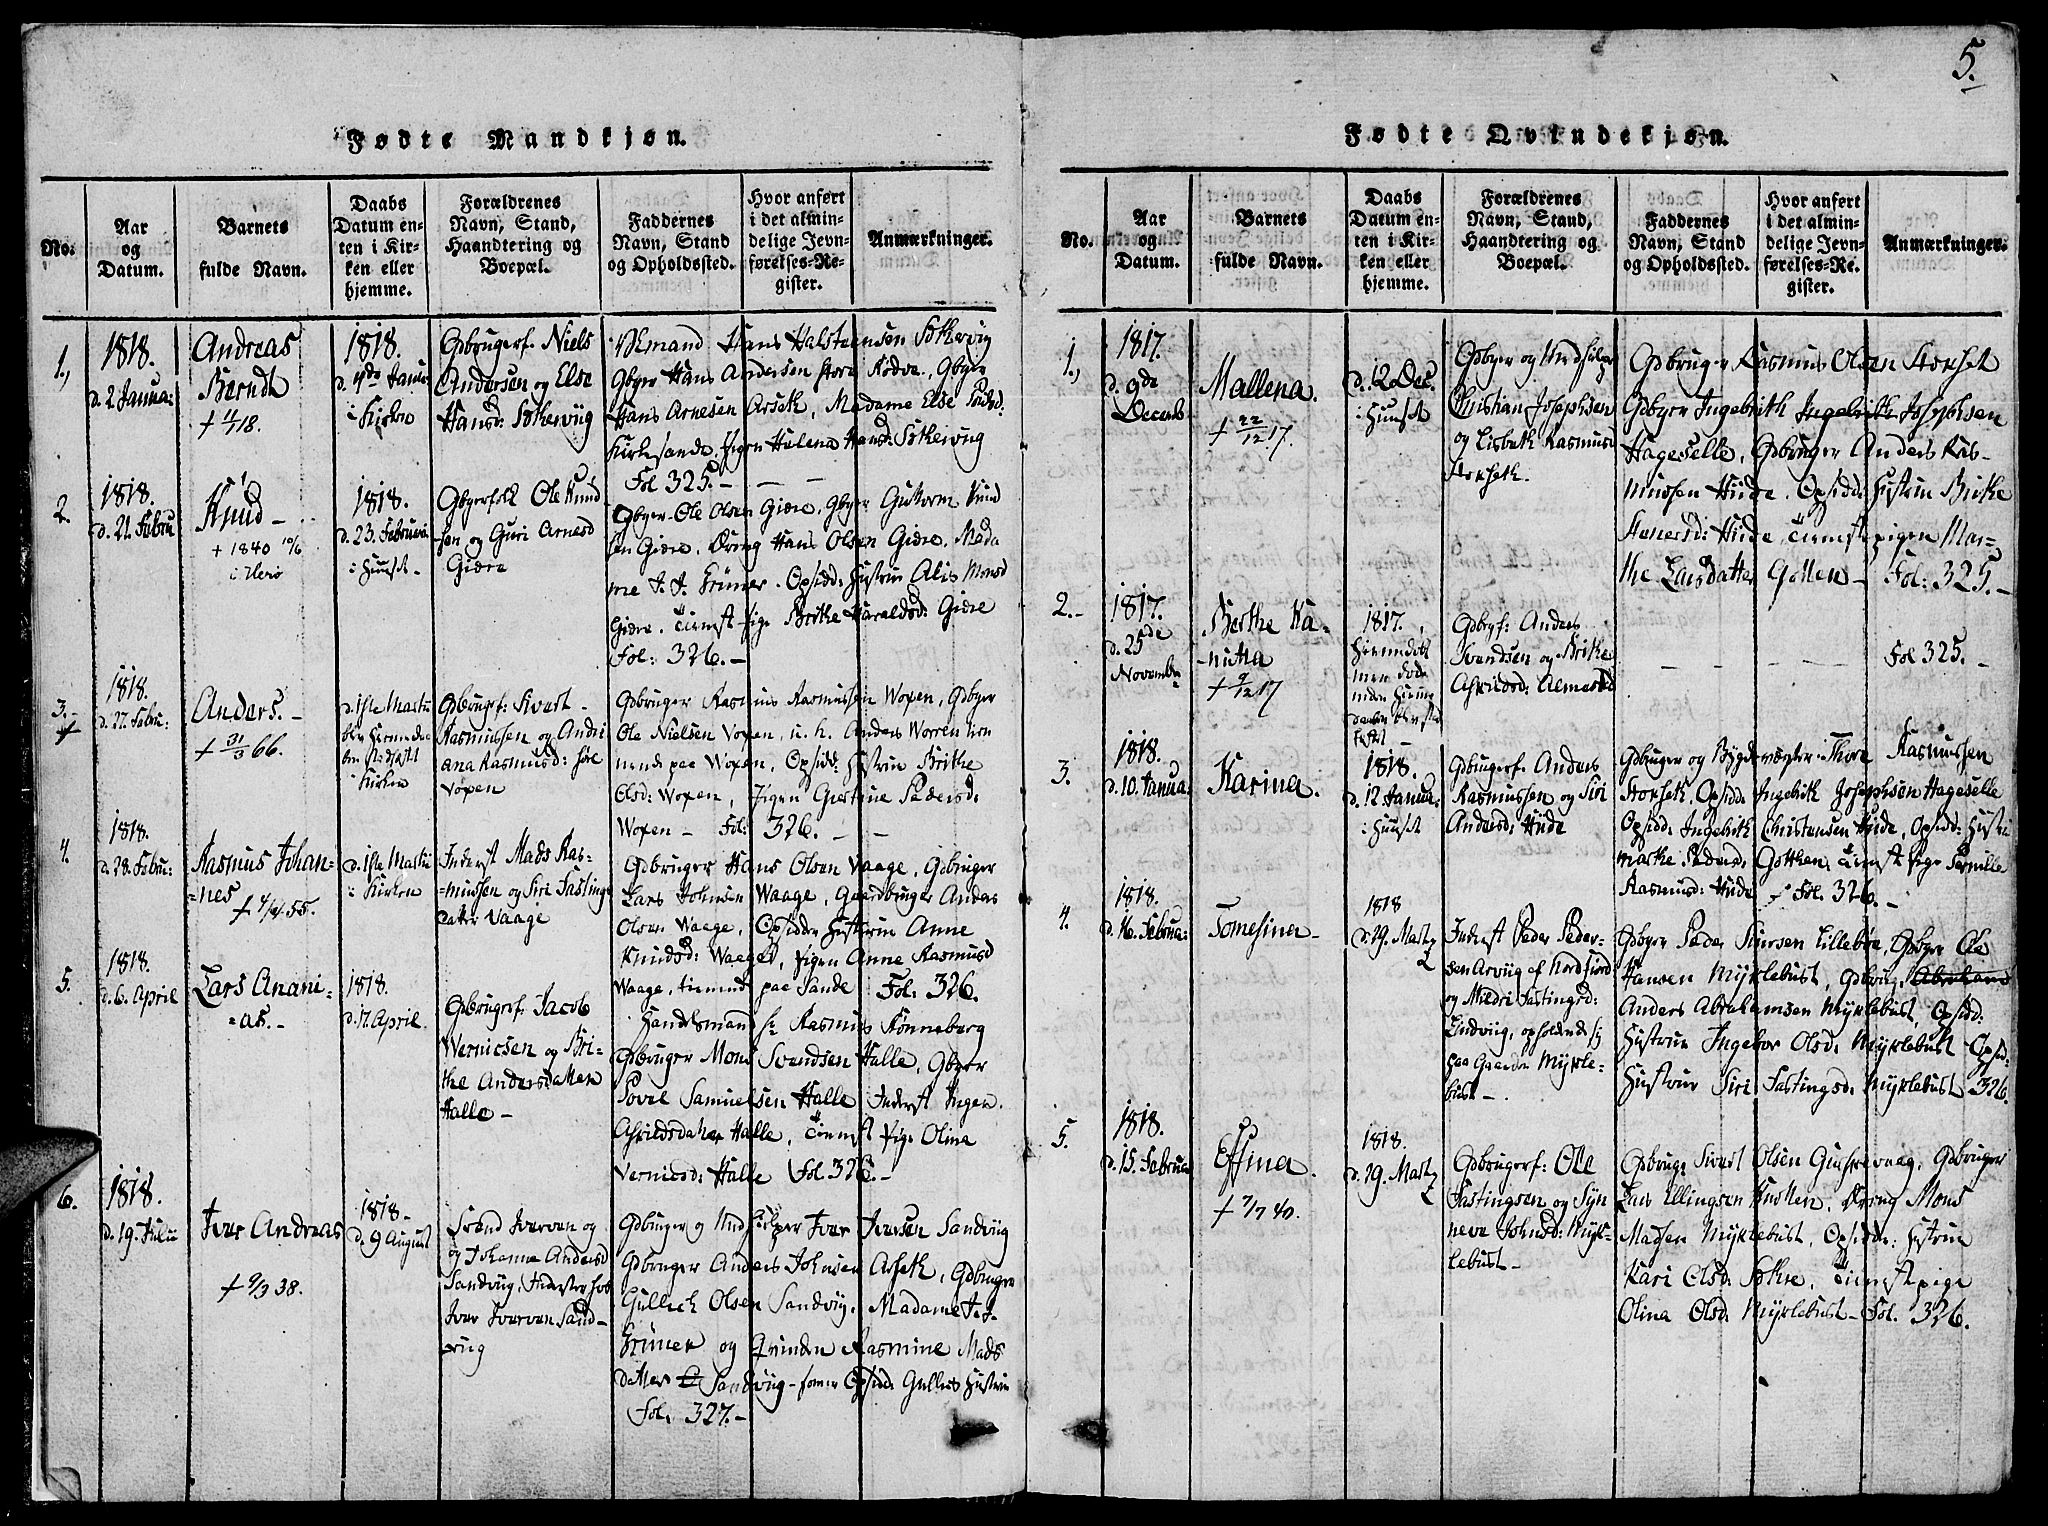 5.
Fødte Mandkjøn.
No.
Aar
og
Datum.
Barnets
fulde Navn.
Daabs
Datum en-
ten i Kir-
ken eller
hjemme.
Forældrenes
Navn, Stand,
Haandtering og
Boepæl.
Faddernes
Navn, Stand
og Opholdssted.
Hvor anført
i det almin-
delige Jevn-
førelses-Re-
gister.
Anmærkninger.
1.,
1818.
d. 2 Janua:
Andreas
Berndt
+ 4/1 18.
1818.
i Kirken
Gdbrugerf. Niels
Andersen og Else
Hansd:
Hans Halsteensen
Gbyer Hans Andersen store Rødve, Gbyer
Hans Arnesen Arsek, Madame Else
Helena Hansd:
Fol 325. -
2.
1818.
d. 21. Febru
Knud -
+ 1840 10/6
i Herø
1818.
d. 23. Februar
i Huuset -
Gbyerfolk Ole Knud
sen og Guri Arnesd
Giøre
Gbyer Ole Olsen Giøre, Gbyer Guttorm Knud
sen Giøre, Dreng Hans Olsen Giøre, Mada
me J. J. Grüner, Opsidd: Hustrue Alis Monsd
Giøre, Tienst Pige Birthe Haraldsd: Giøre
Fol: 326. -
3. -
1818.
d. 27. Febru:
Anders. -
+ 31/3 66.
i Kirken
Gdbrugerf: Sivert
Rasmussen og Andri
ana Rasmusd:
Voxen
Gdbruger Rasmus Rasmussen Woxen, Gdbyer
Ole Nielsen Voxen, u. k. Anders Worren tien
nende paa Woxen, Opsidd: Hustrue Brithe
Olsd: Woxen, Pigen Giertrue Pedersd:
Woxen - Fol: 326. -
4.
1818.
d. 28. Febru:
Rasmus Johan-
=nes
+ 4/4 55.
i Kirken
Inderst Mads Ras-
=mussen og Siri Fastings
dater Vaage
Gdbruger Hans Olsen Vaage, Gdbruger
Lars Johnsen Waage, Gaardbruger Anders
Olsen Waage, Opsidder Hustrue Anne
Knudsd: Waage, Pigen Anne Rasmusd
Waage, tienende paa Sande Fol. 326.
5.
1818.
d. 6. April
Lars Anani-
=as. -
1818.
d. 17. April.
Gdbrugerf. Jacob
Wernicsen og Bri-
the Andersdatter
Halle -
Handelsmand Hr Rasmus Rønneberg
Gdbruger Mons Svendsen Halle, Gbyer
Povel Samuelsen Halle Inderst Inger
Halle, Tienst Pige Olina
Vernicsd: Halle Fol. 326. -
6.
1818.
d. 19. Julii
Iver Andreas
+ 9/3 38.
1818. -
d. 9 August
Svend Iversen og
og Johanne Andersd
Sandviig, Inderster hos
Iver Iversen Sand-
viig
Gdbruger og Medhielper Iver Iversen Sandviig
Gdbruger Anders Johnsen Arsek, Gdbruger
Gullich Olsen Sandviig, Madame J. J.
Grüner og Qvinden Rasmine Mads
datter Sandviig - Opsidd: Gullics Hustrue
Fol. 327. -
Fødte Qvindekjøn.
No.
Aar
og
Datum.
Barnets
fulde Navn.
Daabs
Datum en-
ten i Kir-
ken eller
hjemme.
Forældrenes
Navn, Stand,
Haandtering og
Boepæl.
Faddernes
Navn, Stand
og Opholdssted.
Hvor anført
i det almin-
delige Jevn-
førelses-Re-
gister.
Anmærkninger.
1.,
1817.
d. 9de
Decemb
Mallena.
+ 22/12 17.
d. 12 Dec.
i Huuset
Gdbyer og Medhielper
Christian Josephsen
og Lisbeth Rasmusd
Storsek.
Gdbruger Rasmus Olsen Storset
Gdbyer Ingebrith Josephsen
Hageselle, Gdbruger Anders Ras-
mussen Hide, Opsidd: Hustrue Birthe
Hide Tienstpigen Mar-
the Larsdatter Gotten - Fol: 325. -
2. -
1817.
d. 25de
November
Berthe Ka-
-nutha
+ 9/12 17
1817.
Gdbrf: Anders
Svendsen og Brithe
Fol 325. -
3.
1818.
d. 10. Janua:
Karina.
1818.
d. 12 Janua:
i Huuset
Gdbrugerf. Anders
Rasmussen og Siri
Andersd: Hide
Gdbruger og Thore Rasmussen
Storsek, Opsidd. Ingebrik Josephsen Hageselle
Opsidd: Ingebrik Christensen Hide, Opsidd: Hustrue
Marthe Pedersd. Gotthen, Tienst Pige Pernille
Rasmusd: Hide Fol. 326. -
4.
1818.
d. 16. Februa:
Tomesina -
1818
d. 29. Marty
Inderst Peder Peder-
sen Arviig af Nordfiord
og Mildri Fastingsd:
Lindviig, opholdende sig
paa Gaarden Mykle-
bust -.
Gdbyer Peder Siversen Lillebøe, Gdbyer Ole
Hansen Myklebust, Gdbrug. Abraham
Anders Abrahamsen Myklebust, Opsidd:
Hustrue Ingebor Olsd: Myklebust - Opsid:
Hustrue Siri Fastingsd: Myklebust - 326.
5.
1818.
d. 15. Februa
Essina.
+ 7/7 40.
1818.
d. 29. Marty
Gdbrugerf: Ole
Fastingsen og Syn
neve Johnsd: Myk-
lebust -
Gdbruger Sivert Olsen Gursevaag, Gdbruger
Lars Ellingsen Knotten, Dreng Mons
Madsen Myklebust, Opsidd: Hustrue
Kari Olsd. Søthre, Tienstpige
Olina Olsd. Myklebust - Fol. 326.